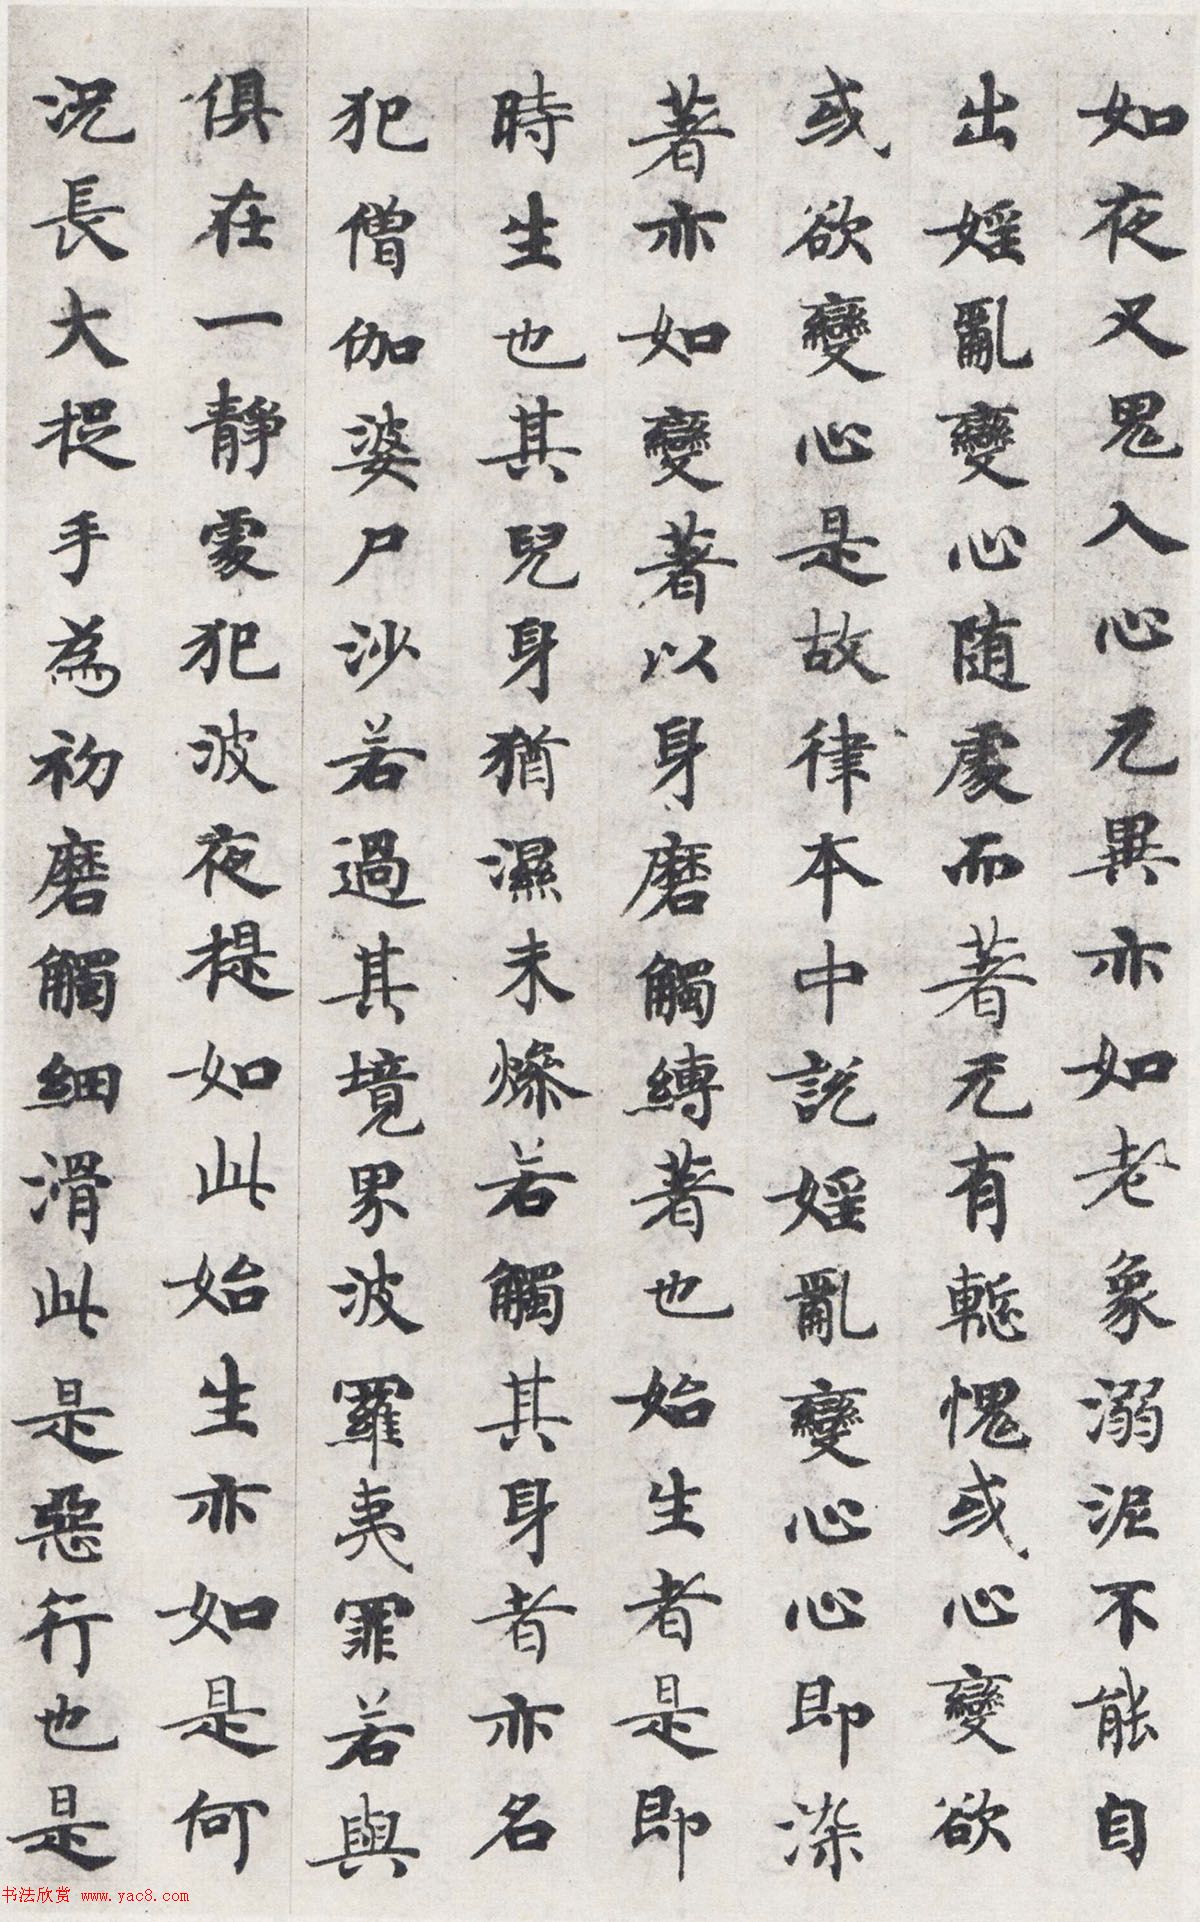 如夜叉鬼入心无異亦如老象溺泥不能自
出婬亂變心随處而著无有慙愧或心變欲
或欲變心是故律本中說婬亂變心心即染
著亦如變著以身磨觸縛著也始生者是即
時生也其兒身猶濕未燥若觸其身者亦名
犯僧伽婆尸沙若過其境界波羅夷罪若與
俱在一靜處犯波夜提如此始生亦如是何
況長大捉手為初磨觸細滑此是惡行也是
书法欣赏 www.yac8.com